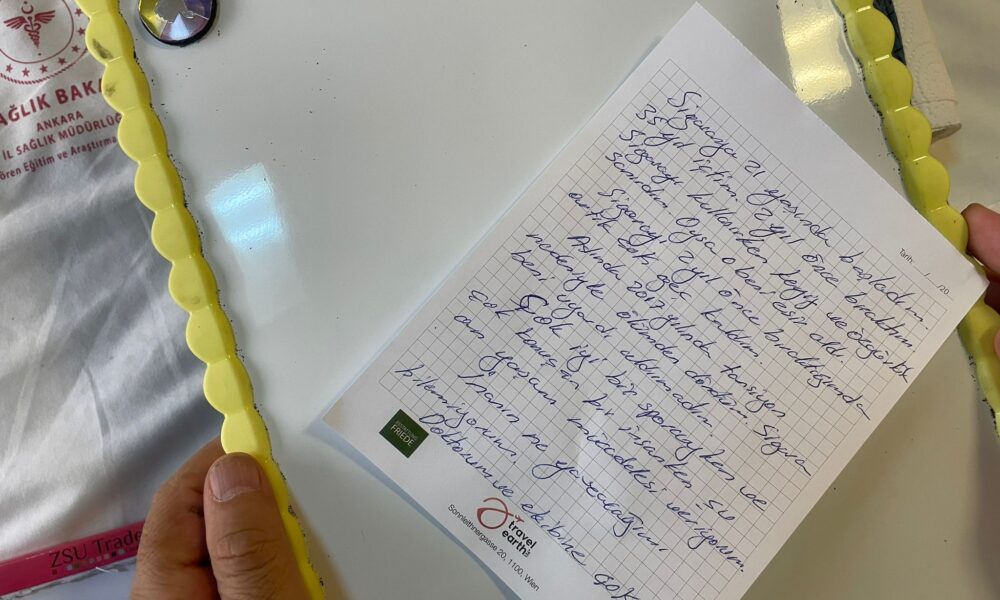 AĞLIK BAKA
ANKARA
İL SAĞLIK MÜDÜRLÜĞ
ören Eğitim ve Araştırma
Tarih: / /20...
Sigaraya 21 yaşında başladım.
35 yıl içtim. 2 yıl önce bıraktım
Sigarayı kullanırken keyif ve özgürlük
sandım. Oysa o beni esir aldı.
Sigarayı 2 yıl önce bıraktığımda
artık çok geç kaldım.
Aslında 2017 yılında tansiyon
nedeniyle ölümden döndüm. Sigara
beni uyardı aldırmadım.
Çok iyi bir sporcuyken ve
çok konuşan bir insanken şu
an yaşam mücadelesi veriyorum.
İnanın ne yaşacağımı
bilemiyorum.
Doktorum ve ekibine çok
FRIEDE
travel
earth
Sonnleithnergasse 20, 1100, Wien
ZSU Trade